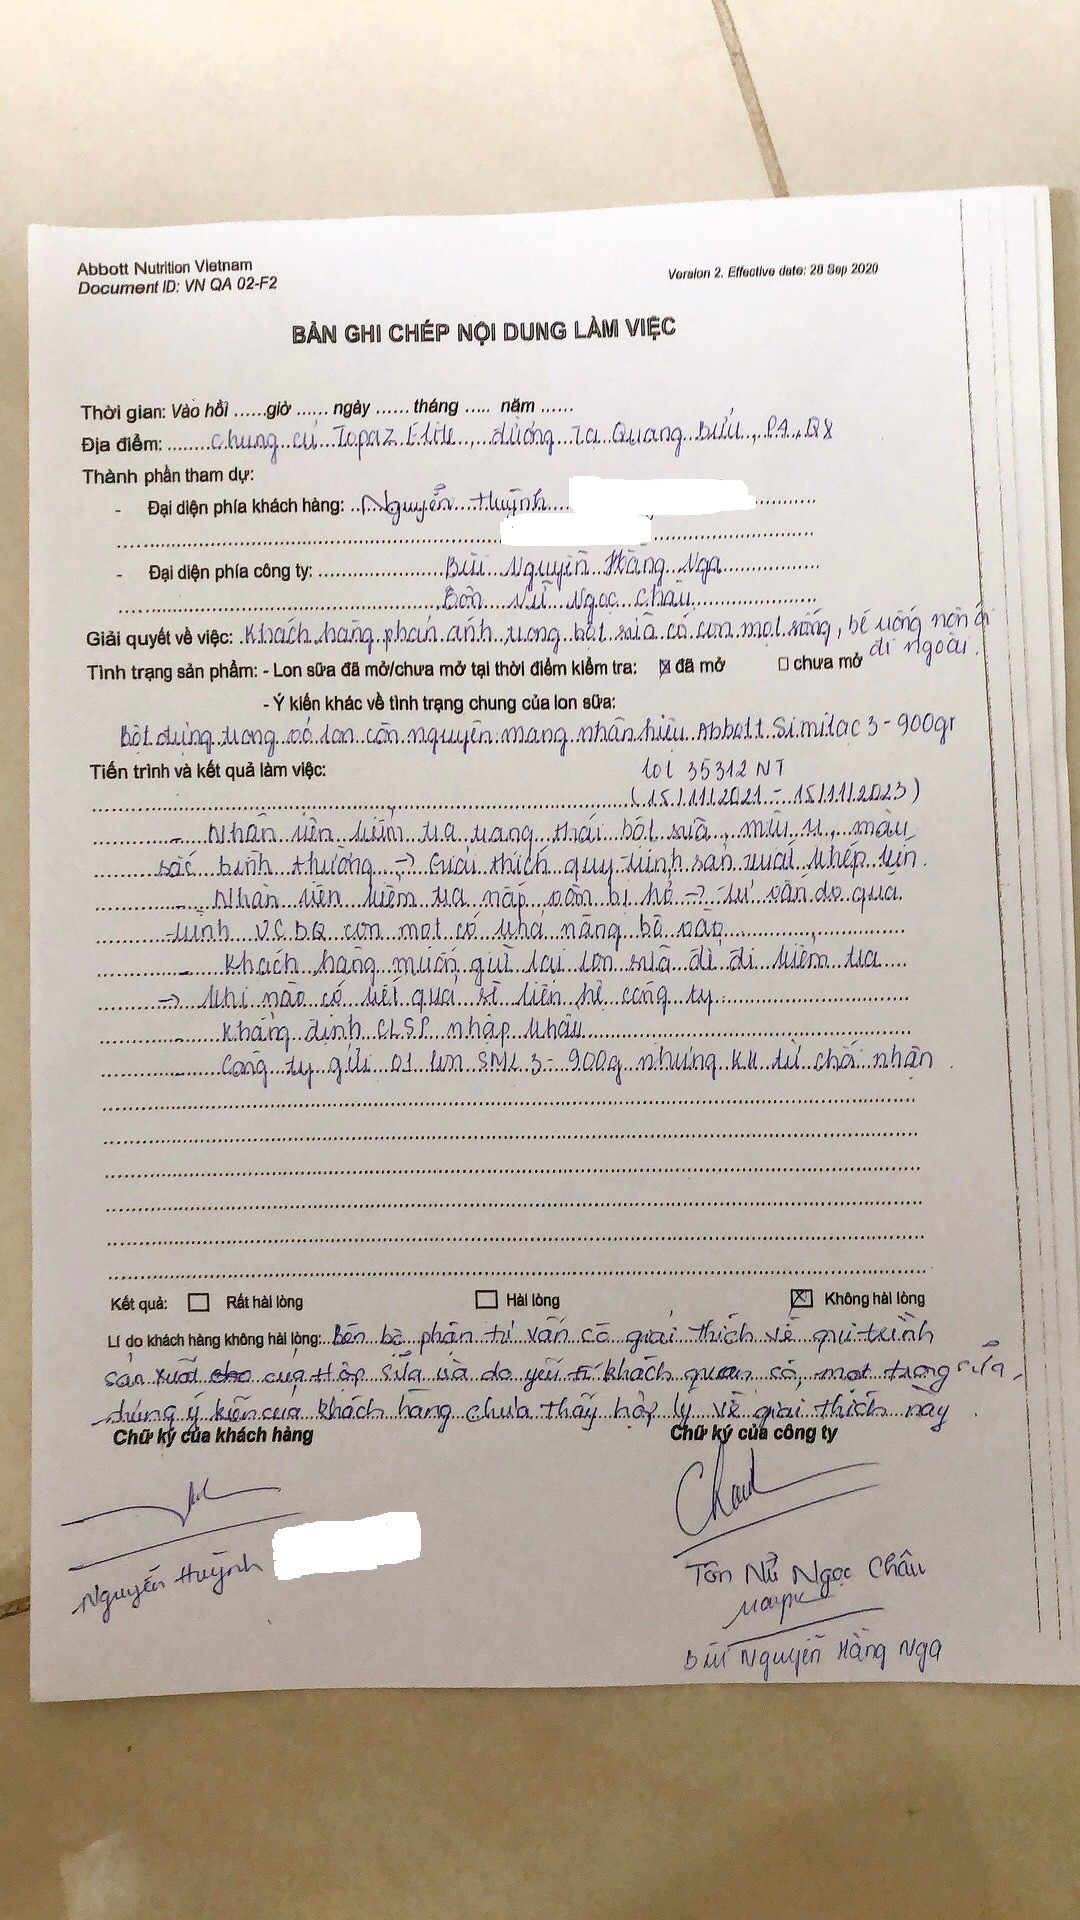 Abbott Nutrition Vietnam
Document ID: VN QA 02-F2
Version 2. Effective date: 28 Sep 2020
BẢN GHI CHÉP NỘI DUNG LÀM VIỆC
Thời gian: Vào hồi ......giờ ...... ngày ...... tháng ..... năm ......
Địa điểm: Chung cư Topaz Elite, đường Tạ Quang Bửu, P4, Q8
Thành phần tham dự:
- Đại diện phía khách hàng: Nguyễn Huỳnh
- Đại diện phía công ty: Bùi Nguyễn Hằng Nga
Tôn Nữ Ngọc Châu
Giải quyết về việc: Khách hàng phản ánh trong bột sữa có con mọt sống, bé uống nôn ói
đi ngoài.
Tình trạng sản phẩm: - Lon sữa đã mở/chưa mở tại thời điểm kiểm tra: ☒ đã mở ☐ chưa mở
- Ý kiến khác về tình trạng chung của lon sữa:
Bột đựng trong vỏ lon còn nguyên mang nhãn hiệu Abbott Similac 3 - 900gr
Tiến trình và kết quả làm việc: lot 35312NT
(15/11/2021 - 15/11/2023)
- Nhân viên kiểm tra trạng thái bột sữa, mùi vị, màu
sắc bình thường -> Giải thích quy trình sản xuất khép kín.
- Nhân viên kiểm tra nắp vẫn bị hở -> tư vấn do quá
trình VCBQ con mọt có khả năng bò vào
- Khách hàng muốn giữ lại lon sữa để đi kiểm tra
-> khi nào có kết quả sẽ liên hệ công ty.
- Khẳng định CLSP nhập khẩu
- Công ty gửi 01 lon SML 3 - 900g nhưng KH từ chối nhận.
Kết quả: ☐ Rất hài lòng ☐ Hài lòng ☒ Không hài lòng
Lí do khách hàng không hài lòng: Bên bộ phận tư vấn có giải thích về qui trình
sản xuất của Hộp sữa và do yếu tố khách quan có mọt trong sữa,
nhưng ý kiến của khách hàng chưa thấy hợp lý về giải thích này.
Chữ ký của khách hàng Chữ ký của công ty
Nguyễn Huỳnh
Tôn Nữ Ngọc Châu
Bùi Nguyễn Hằng Nga